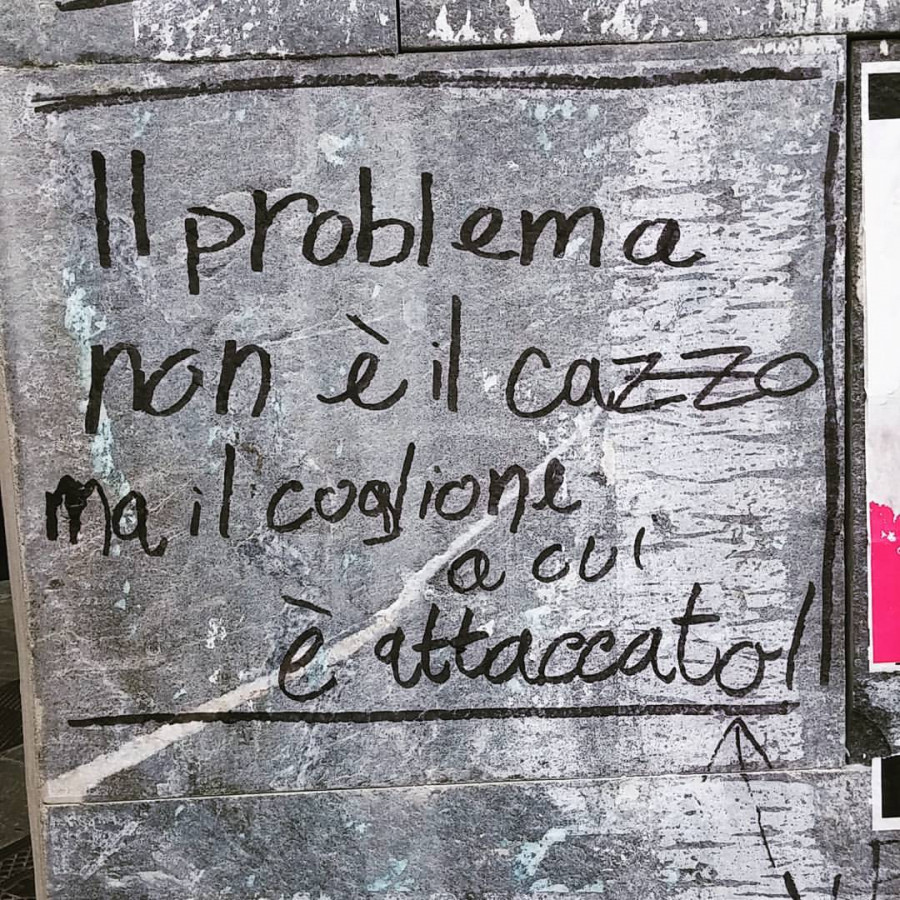 Il problema
non è il cazzo
ma il coglione
a cui
è attaccato!